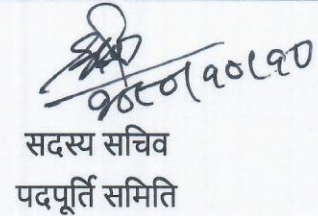 २०८०।१०।१०
सदस्य सचिव
पदपूर्ति समिति